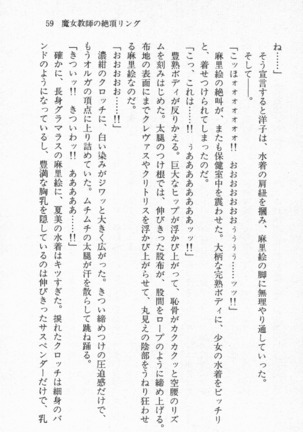 59　魔女教師の絶頂リング
ね……」
　そう宣言すると洋子は、水着の肩紐を摑み、麻里絵の脚に無理やり通していった。
　そして――。
「こッほォォォォオ!!　おおおおおおぅぅぅ……ッッ!!」
　麻里絵の絶叫が、またも保健室中を震わせた。大柄な完熟ボディに、少女の水着をピッチリ
と、着せつけられてしまったのだ。
「こっ、これっ……!!　ぅああああああ……ッ!!」
　豊熟ボディが反りかえる。巨大なヒップが浮かび上がって、恥骨がカクカクッと空腰のリズ
ムを刻みはじめた。太腿のつけ根では、伸びきった股布が、股間をロープのように締め上げる。
布地の表面にまでクレヴァスやクリトリスを浮かび上がらせて、丸見えの陰部をうねり狂わせ
る麻里絵なのだ。
「おおおおお……!!」
　濃紺のクロッチに、白い染みがジワッと大きく広がった。きつい締めつけの圧迫感だけで、
もうオルガの頂点に上り詰めていた。ムチムチの太腿が汗を散らして跳ね踊る。
「きついッ!!　きついわッ!!　あああああ……!!」
　確かに、長身グラマラスの麻里絵に、夏美の水着はキツすぎた。捩れたクロッチは細身のバ
ンドのようになっているし、豊満な胸乳を隠しているのは伸びきったサスペンダーだけで、乳